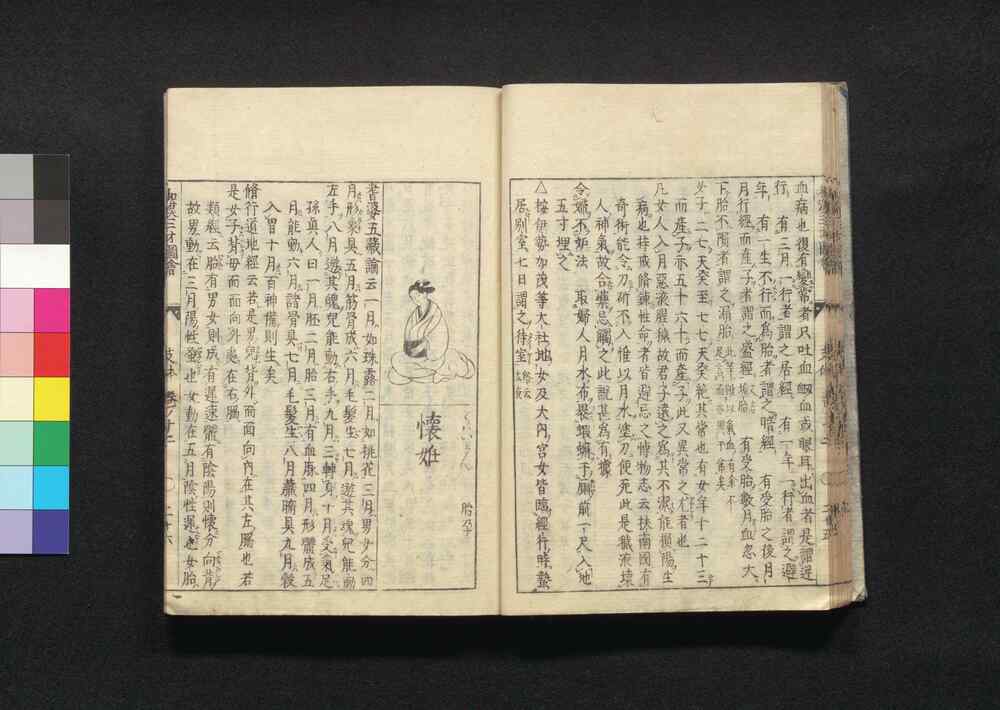 血病也復有變常者只吐血衂血或眼耳出血者是謂逆
行有三月一行者謂之居經有一年一行者謂之避
年有一生不行而爲胎者謂之暗經有受胎之後月
月行經而產子者謂之盛經有受胎數月血忽大
下胎不隕者謂之漏胎
女子二七天癸至七七天癸絶其常也有女年十二十三
而產子亦五十六十而產子此又異常之尤者也
凡女人入月惡液腥穢故君子遠之爲其不潔能損陽生
病也
奇術能令刀斫不入惟以月水塗刀便死此是穢液壞
人神氣故合藥忌觸之此說甚爲有據
令婦不妬法 取婦人月水布裹蝦蟆于厠前一尺入地
五寸埋之
△按伊勢加茂等大社地女及大內宮女皆臨經行時蟄
居別室七日謂之待室
懷姙
くわいにん
胎孕
耆婆五藏論云一月如珠露二月如桃花三月男女分四
月形象具五月筋骨成六月毛髮生七月遊其魂兒能動
左手八月遊其魄兒能動右手九月三轉身十月受氣足
孫眞人曰一月胚二月胎三月有血脉四月形體成五
月能動六月諸骨具七月毛髮生八月臟腑具九月穀
入胃十月百神備則生矣
脩行道地經云若是男兒背外而面向內在其左脇也若
是女子背母而面向外處在右脇
類經云胎有男女則成有遲速體有陰陽則懷分向背
故男動在三月陽性發也女動在五月陰性遲也女胎
和漢三才圖會